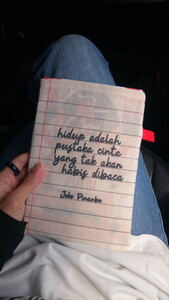 hidup adalah
pustaka cinta
yang tak akan
habis dibaca
Joko Pinurbo